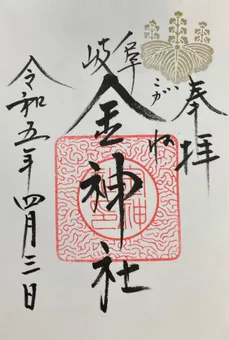 奉拝
岐阜
こがね
金神社
令和五年四月三日